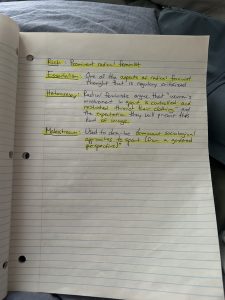 Rich: Prominent radical feminist
Essentialism: One of the aspects of radical feminist
thought that is regularly criticised
Heterosexy: Radical feminists argue that "women's
involvement in sport is controlled and
restricted through their clothing and
the expectation they will present this
kind of image.
Malestream: Used to describe dominant sociological
approaches to sport (from a gendered
perspective)"